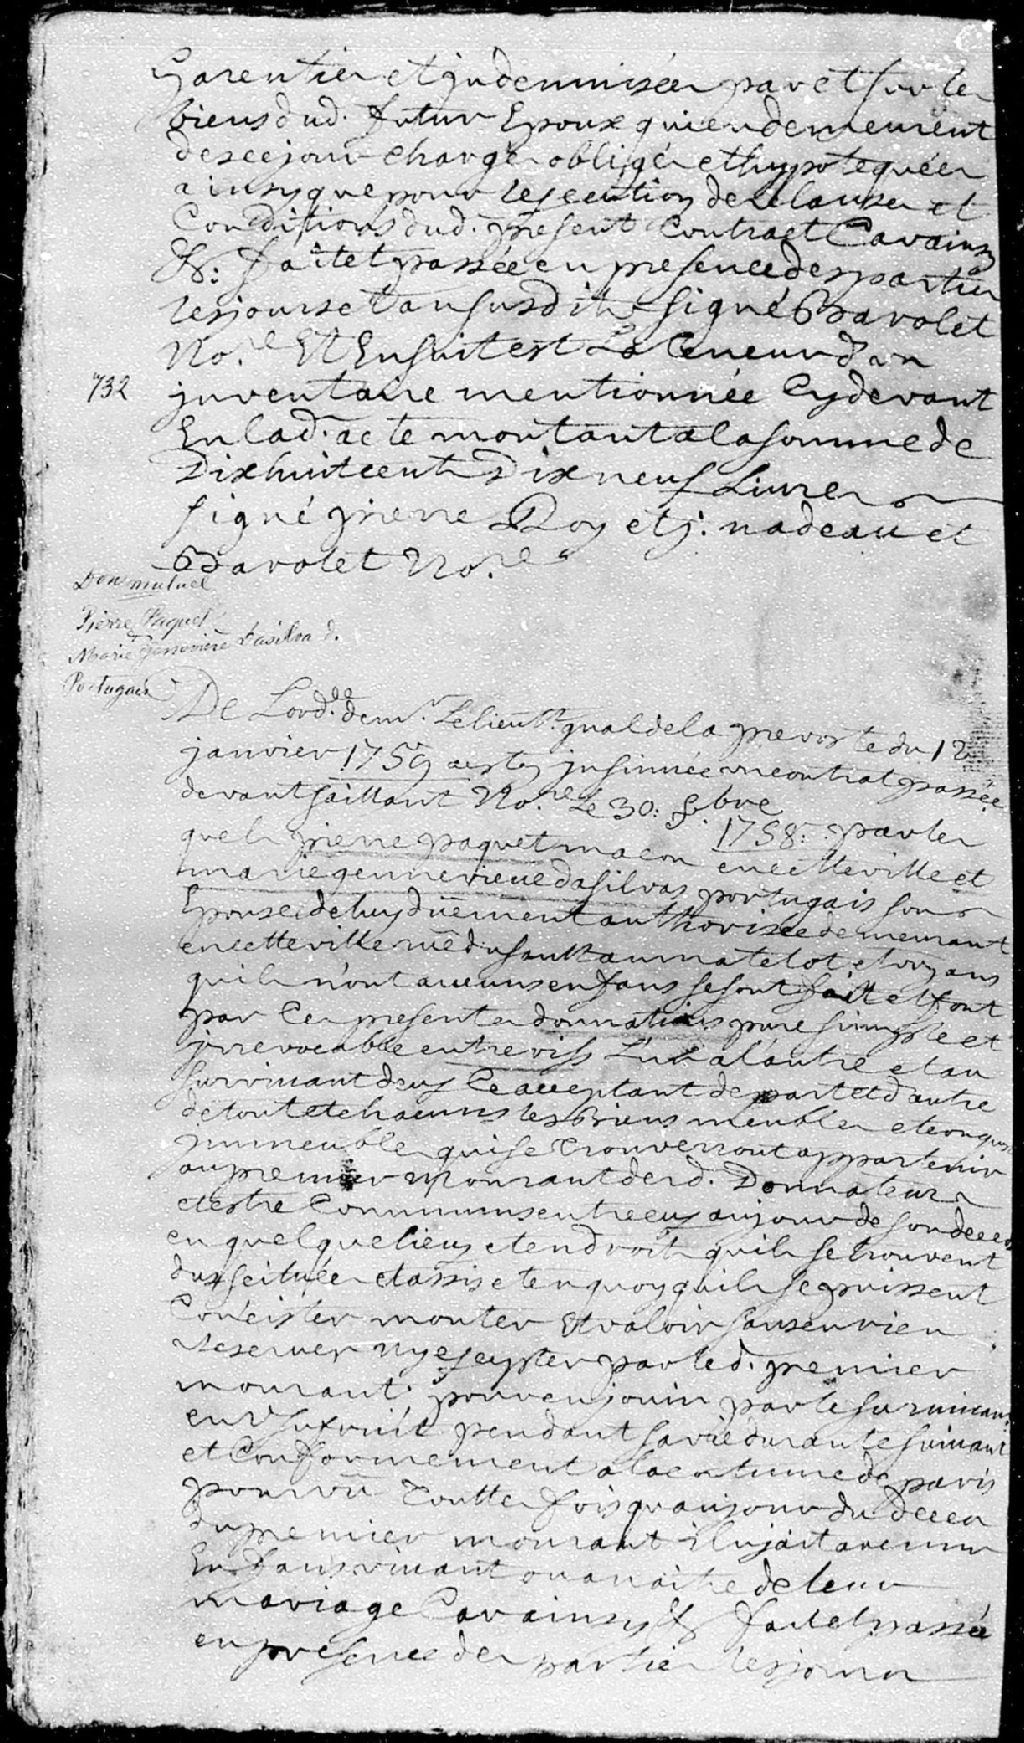 Garenties et jndemnisées par et sur les
biens dud. futur Epoux qui en demeurent
de ce jour chargés obligés et hypotequées
ainsy que pour lexecution des clauses et
Conditions dud. present Contract Car ainsy
&c: fait et passée en presence des parties
les jours et an susdits signé Barolet
No.re Et Ensuit est La teneur d'un
732
jnventaire mentionnée Cydevant
En lad. acte montant a la somme de
Dixhuit cents Dix neuf Livres
signé pierre Roy et j. nadeau et
Barolet No.re
Don mutuel
Pierre Paquet
Marie Genevieve Dasilva d.
Portugais
De Lord.ce de mr. Le lieut. gnal de la prevoste du 12
janvier 1759 a esté jnsinuée un contrat passée
devant saillant No.re Le 30. 8.bre 1758. par les
quels pierre paquet maçon en cette ville et
marie gennevieve dasilvas portugais son
Epouse de luy duement authorisée demeurant
en cette ville rüe du sault au matelot et voyans
quils n'ont aucuns enfans se sont fait et font
par Ces presentes donnations pure simple et
jrrevocable entre vifs L'un a l'autre et au
survivant deux Ce acceptant de part et d'autre
de tout et chacuns les Biens meubles et conquest
jmmeubles qui se trouverront appartenir
au premier mourant desd. Donnateurs
et estre Communs entre eux au jour de son deces
en quelque lieux et endroits quils se trouvent
dus scituée et assise et en quoy quils se puissent
Concister monter et valoir sans en rien
reserver ny exepter par led. premier
mourant. pour en jouir par le survivant
en usufruit pendant sa vie durante suivant
et Conformement a la coutume de paris
pourvû touttes fois qu'au jour du deces
du premier mourant il ny ait aucuns
Enfans vivant ou a naitre de leur
mariage Car ainsy &c fait et passée
en presence des parties les jours